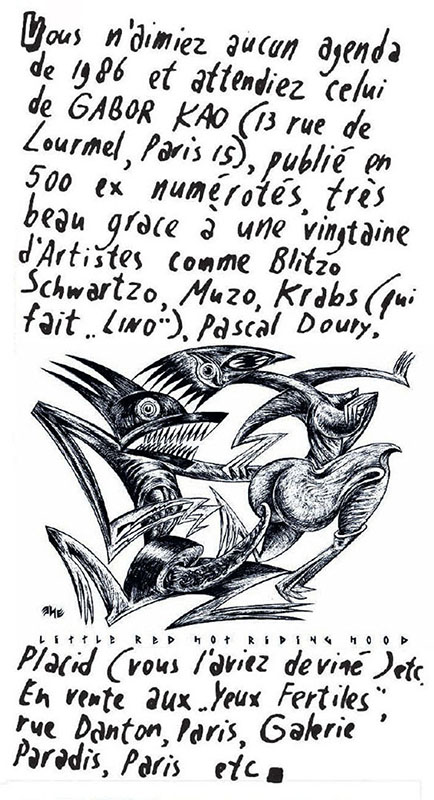 Vous n'aimiez aucun agenda
de 1986 et attendiez celui
de GABOR KAO (13 rue de
Lourmel, Paris 15), publié en
500 ex numérotés, très
beau grace à une vingtaine
d'Artistes comme Blitzo
Schwartzo, Muzo, Krabs (qui
fait „LINO"), Pascal Doury,
LETTLE RED HOT REDING HOOD
Placid (vous l'aviez deviné) etc.
En vente aux „Yeux Fertiles",
rue Danton, Paris, Galerie
Paradis, Paris etc.